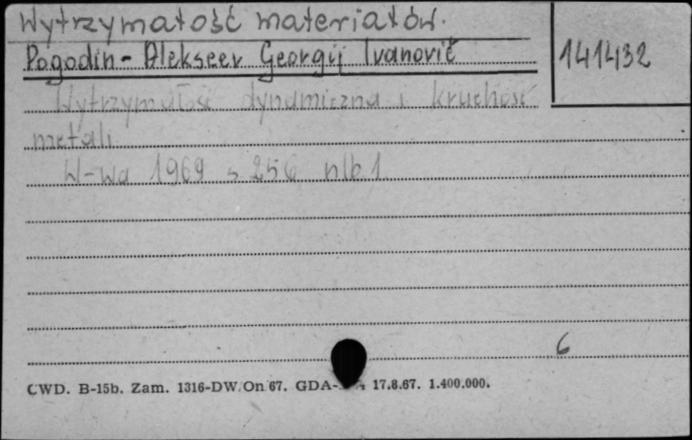 Wytrzymałość materiałów.
Pogodin-Alekseev Georgij Ivanovič
141432
Wytrzymałość dynamiczna i kruchość
metali
W-wa 1969 s 256 nlb 1
6
CWD. B-15b. Zam. 1316-DW/On 67. GDA- 17.8.67. 1.400.000.